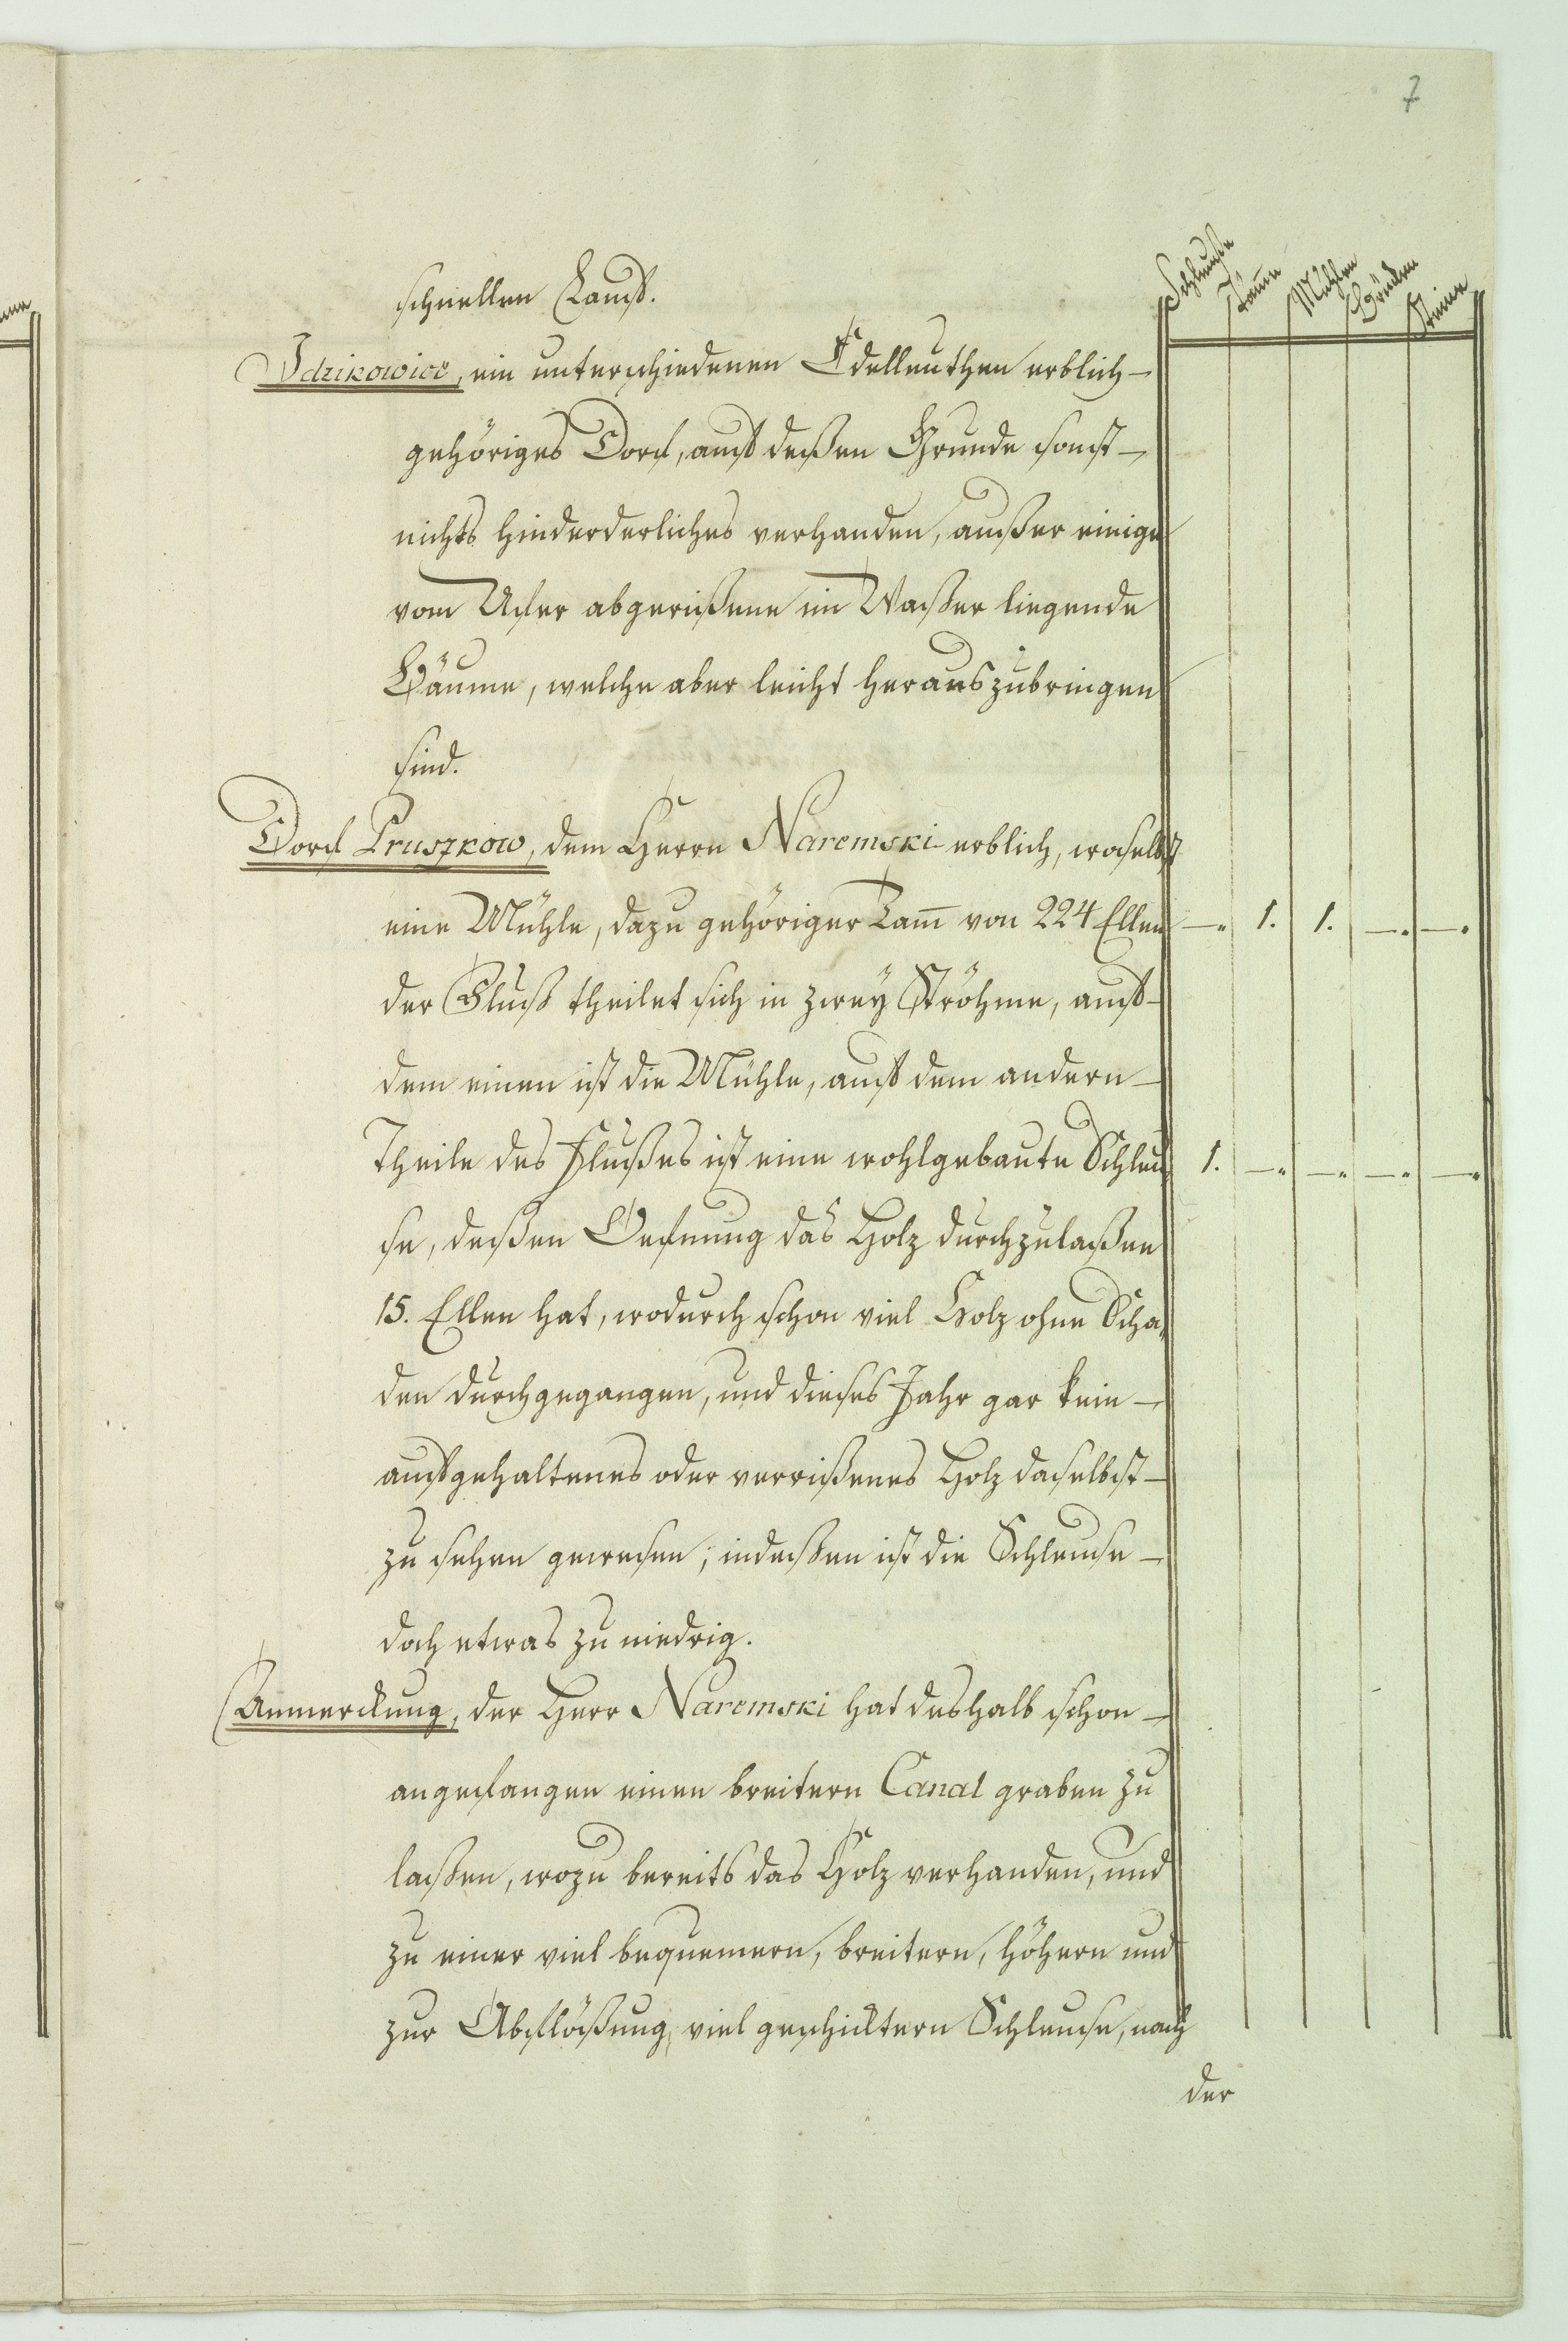 7
Schleuße Täme Mühlen Brücken Steine
schnellen Lauf.
Idzikowice, ein unterschiedenen Edelleuthen erblich-
gehöriges Dorf, auf deßen Grunde sonst-
nichts hinderderliches verhanden, außer einige
vom Ufer abgerißene im Waßer liegende
Bäume, welche aber leicht herauszubringen
sind.
Dorf Pruszkow, dem Herrn Naremski erblich, woselbst
eine Mühle, dazu gehöriger Tam̅ von 224 Ellen —. 1. 1. —. —.
der Fluß theilet sich in zwey Ströhme, auf-
dem einen ist die Mühle, auf dem andern-
Theile des Flußes ist eine wohlgebaute Schleu- 1. —. —. —. —.
se, deßen Oefnung das Holz durchzulaßen
15. Ellen hat, wodurch schon viel Holz ohne Scha-
den durchgegangen, und dieses Jahr gar kein-
aufgehaltenes oder verrißenes Holz daselbst-
zu sehen gewesen; indeßen ist die Schleuse-
doch etwas zu niedrig.
Anmerckung, der Herr Naremski hat deshalb schon-
angefangen einen breitern Canal graben zu
laßen, wozu bereits das Holz verhanden, und
zu einer viel bequemern, breitern, höhern und
zur Abflößung viel geschicktern Schleuse, nach
der